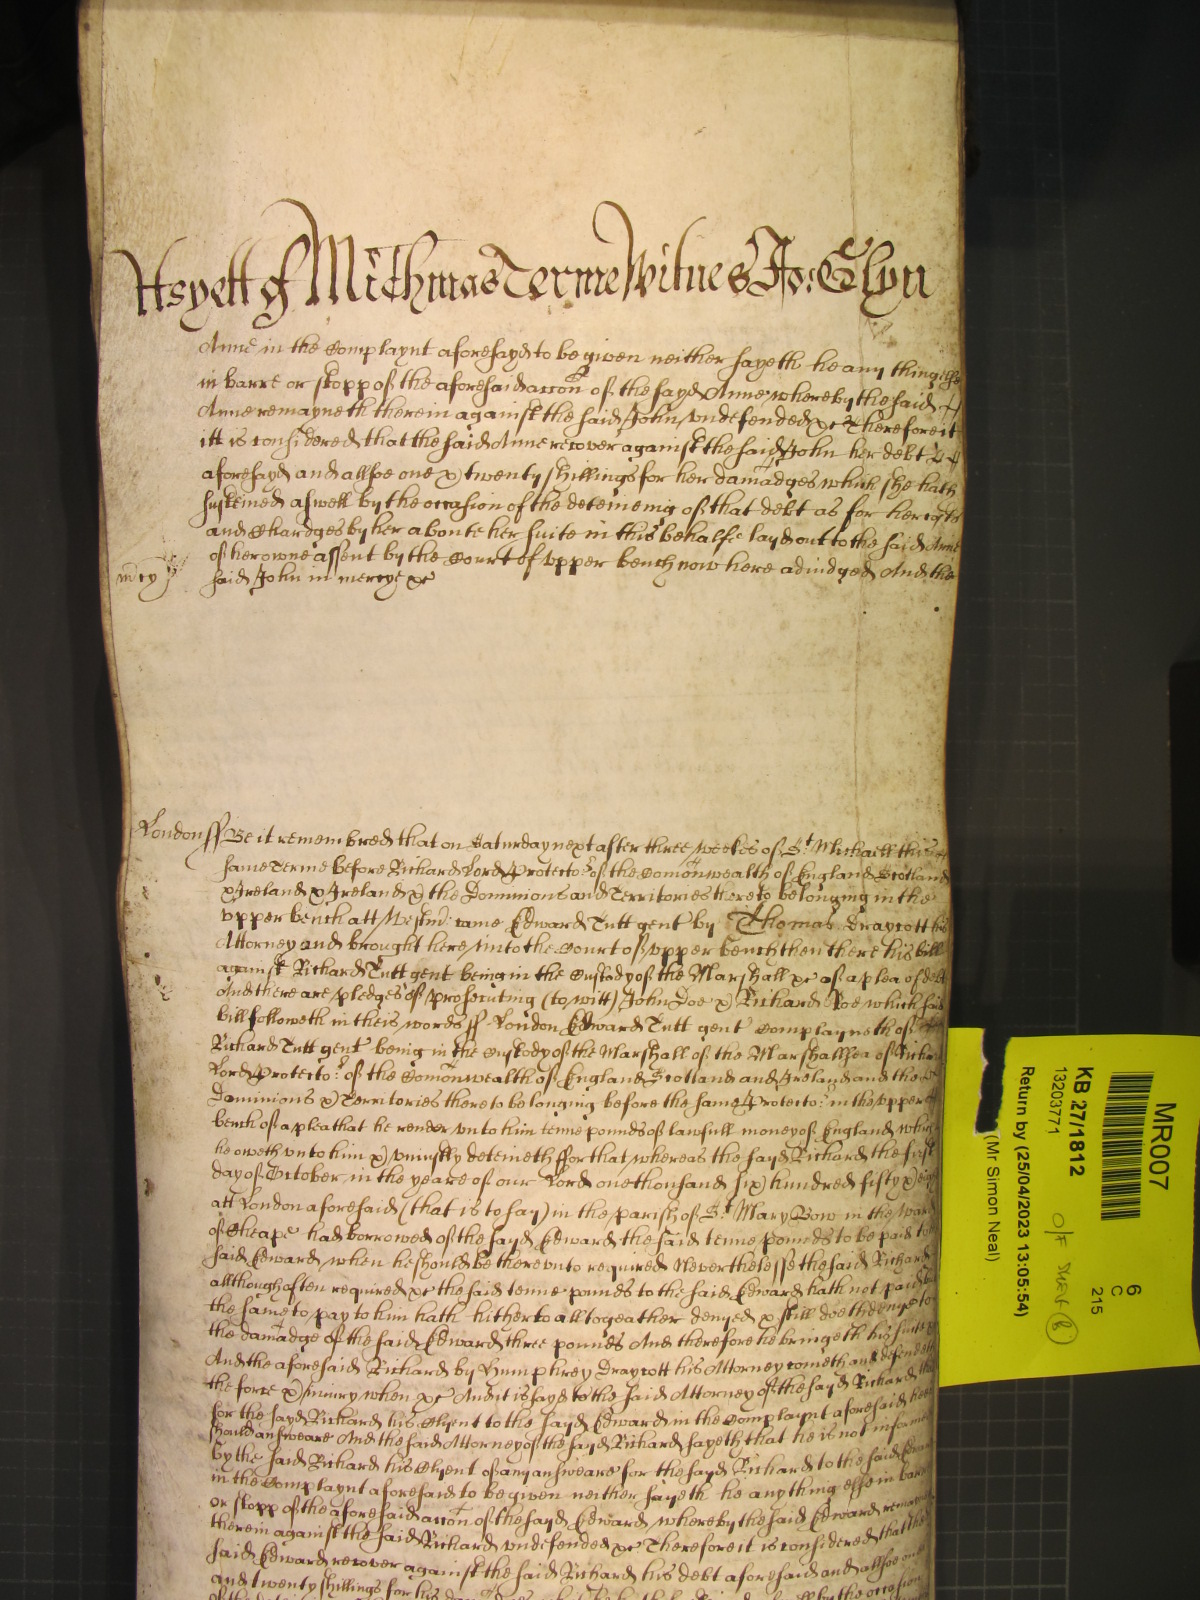 As yett of Michmas Terme Witnes Jo: Glyn
Anne in the Complaynt aforesayd to be given neither sayeth he any thing else
in barre or stopp of the aforesaid accon of the sayd Anne whereby the said
Anne remayneth therein against the said John undefended &c Therefore it
itt is considered that the said Anne recover against the said John her debt
aforesayd and allsoe one & twenty shillings for her damadges which she hath
susteined aswell by the occasion of the deteineing of that debt as for her costs
and Chardges by her aboute her suite in this behalfe layd out to the said Anne
of her owne assent by the Court of upper bench now here adiudged And the
mcy
said John in mercye &c
London ss Be it remembred that on Saturday next after three weekes of St Michaell this
same Terme before Richard Lord Protector of the Comonwealth of England Scotland
& Ireland & Ireland & the Dominions and Territories thereto belonging in the
upper bench att Westmr came Edward Tutt gent by Thomas Draycott his
Attorney and brought here into the Court of upper bench then there his bill
against Richard Tutt gent being in the Custody of the Marshall &c of a plea of debt
And there are pledges of prosecuting (to witt) John Doe & Richard Roe which said
bill followeth in theis words ss London Edward Tutt gent Complayneth of
Richard Tutt gent being in the Custody of the Marshall of the Marshallsea of Richard
Lord Protector of the Comonwealth of England Scotland and Ireland and the
Dominions & Territories thereto belonging before the same Protector in the upper
bench of a plea that he render unto him tenne pounds of lawfull money of England which
he oweth unto him & uniustly deteineth ffor that whereas the sayd Richard the first
day of October in the yeare of our Lord one thousand six hundred fifty & eight
att London aforesaid (that is to say) in the parish of St Mary Bow in the ward
of Cheape had borrowed of the sayd Edward the said tenne pounds to be paid to the
said Edward when he should be thereunto required Neverthelesse the said Richard
allthough often required &c the said tenne pounds to the said Edward hath not paid but
the same to pay to him hath hitherto alltogeather denyed & still doth denye to
the damadge of the said Edward three pounds And therefore he bringeth his suite
And the aforesaid Richard by Humphrey Draycott his Attorney cometh and defendeth
the force & iniury when &c And it is sayd to the said Attorney of the sayd Richard that
for the sayd Richard his Clyent to the sayd Edward in the Complaynt aforesaid hee
should answeare And the said Attorney of the sayd Richard sayeth that he is not informed
by the said Richard his Clyent of any answeare for the sayd Richard to the said Edward
in the Complaynt aforesaid to be given neither sayeth he anything else in barre
or stopp of the aforesaid accon of the sayd Edward whereby the said Edward remayneth
therein against the said Richard undefended &c Therefore it is considered that the
said Edward recover against the said Richard his debt aforesaid and allsoe one
and twenty shillings for his
MR007
6
C
215
KB 27/1812
13203771
O/F
Return by (25/04/2023 13:05:54)
(Mr Simon Neal)